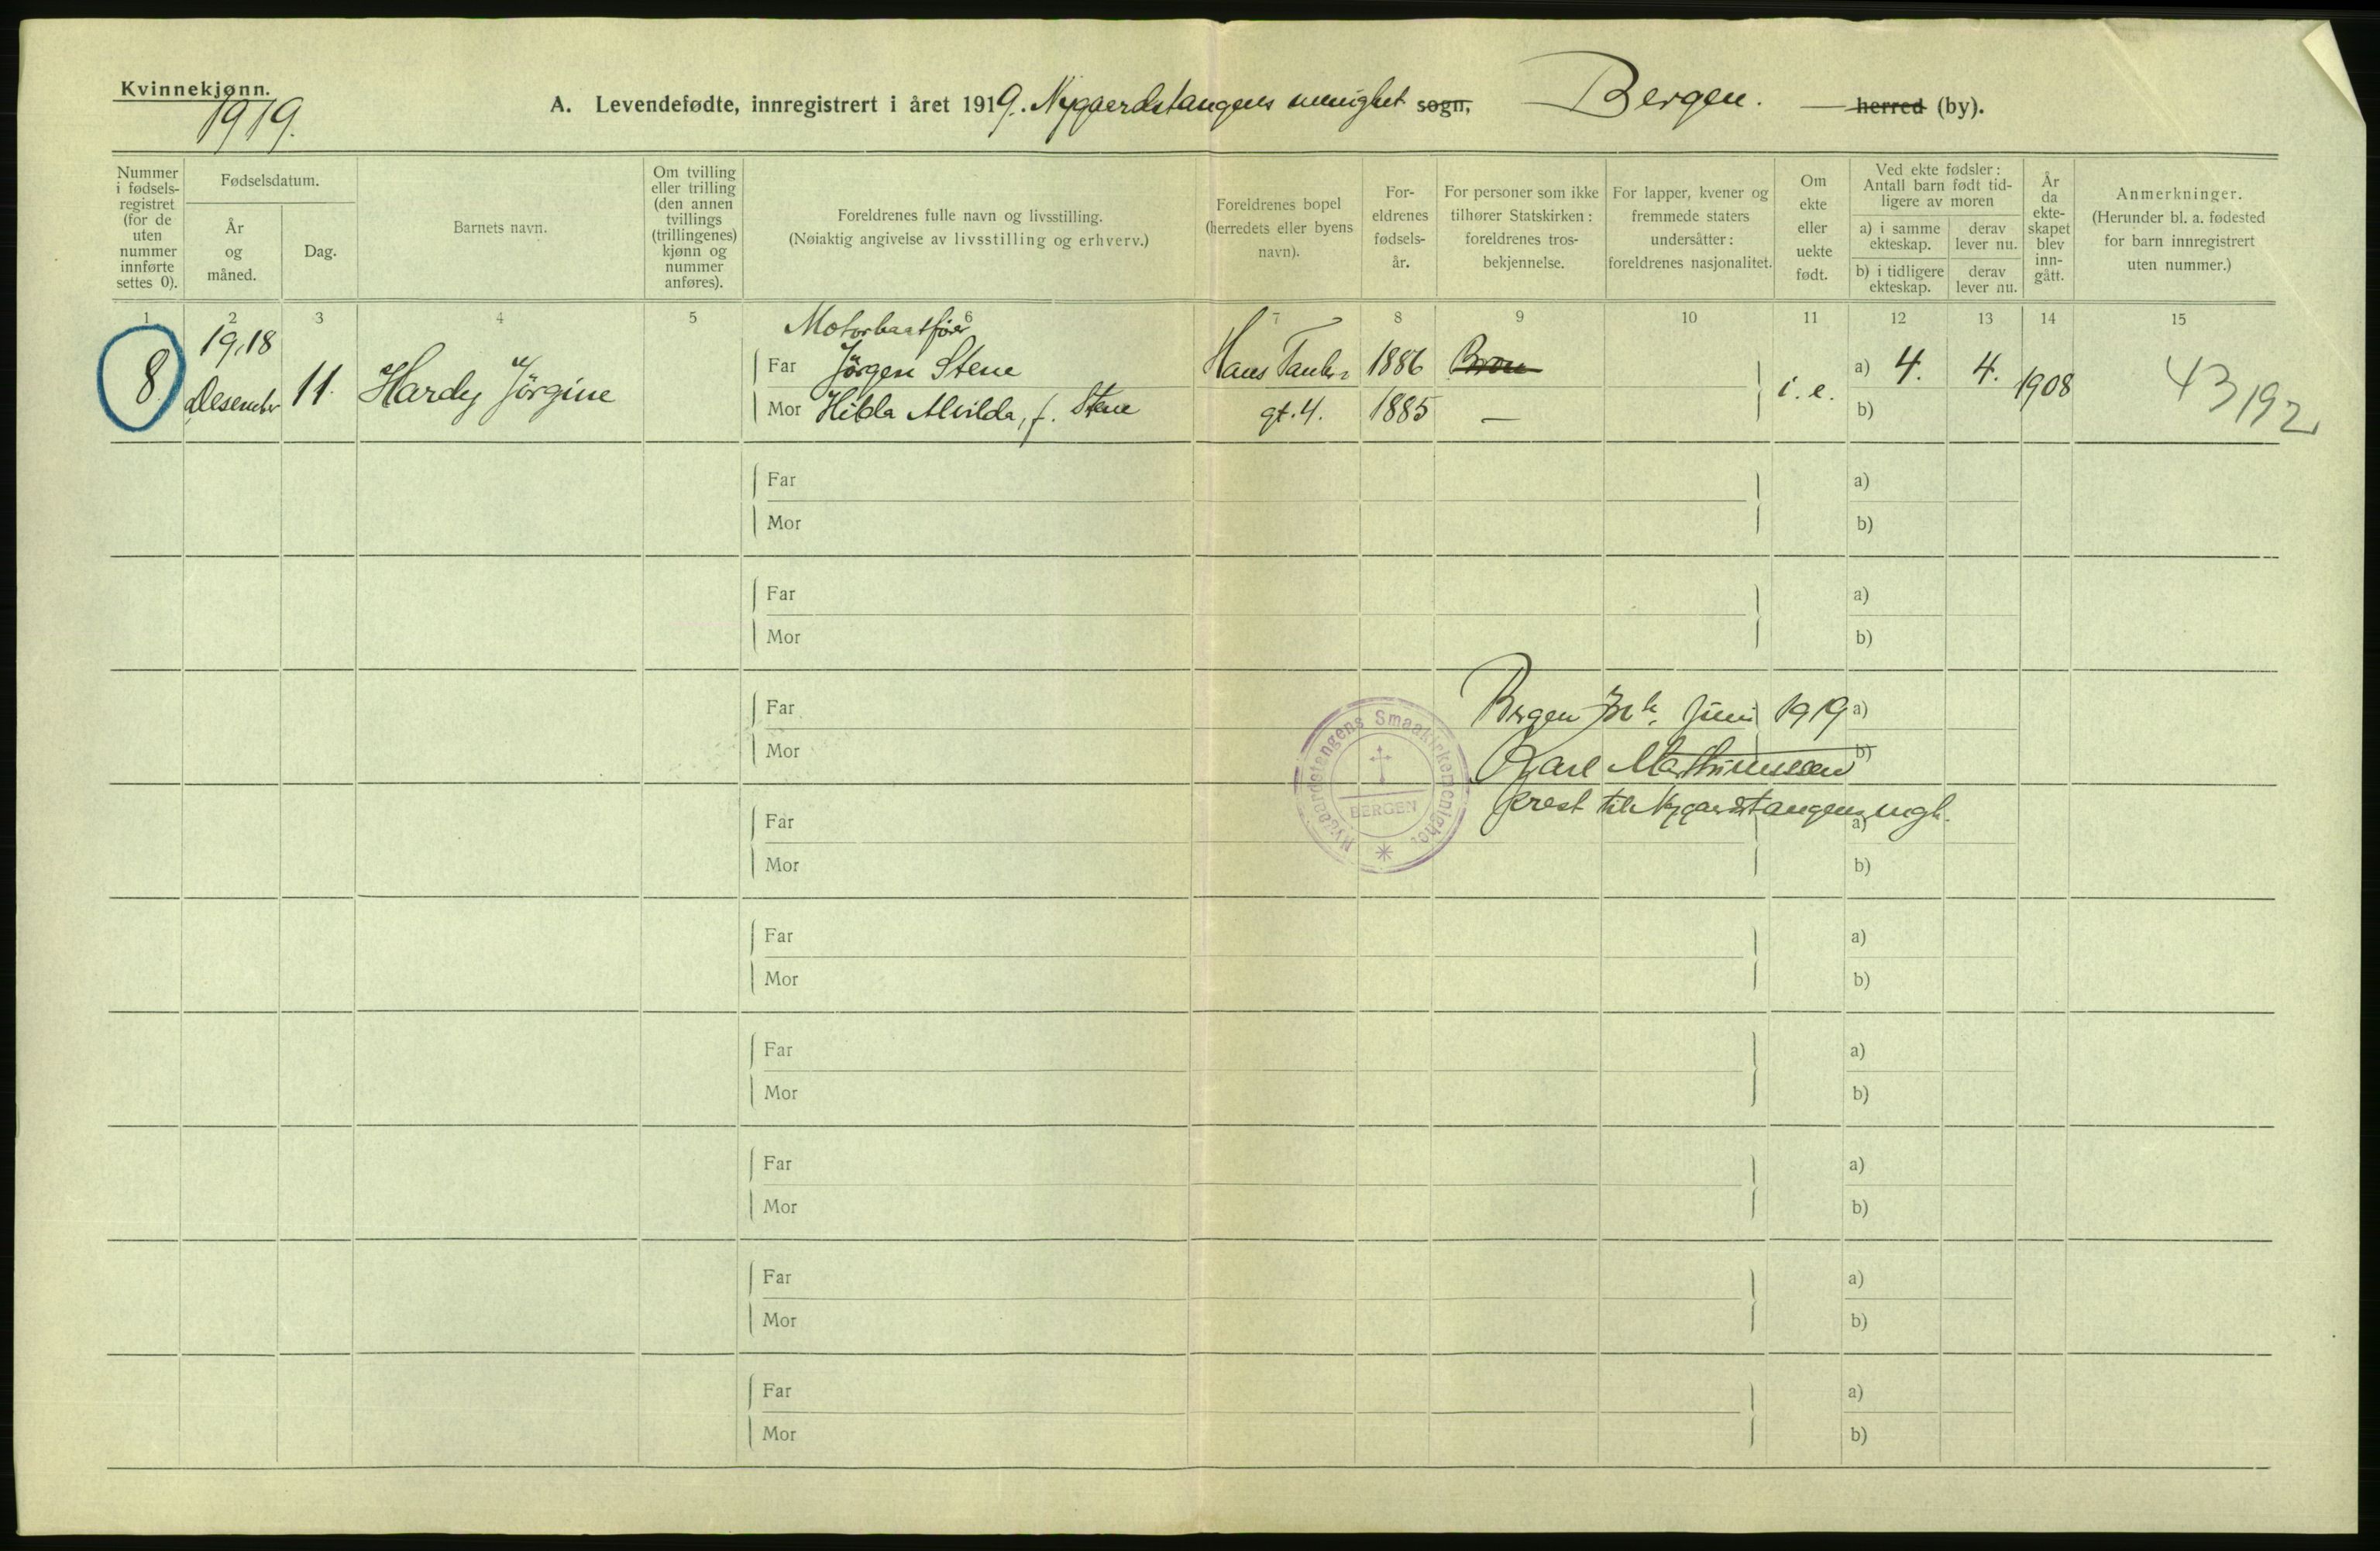 Kvinnekjønn.
1919.
A. Levendefødte, innregistrert i året 1919. Nygaardstangens menighet sogn, Bergen. herred (by).
Nummer i fødsels-registret (for de uten nummer innførte settes 0).
Fødselsdatum.
År og måned.
Dag.
Barnets navn.
Om tvilling eller trilling (den annen tvillings (trillingenes) kjønn og nummer anføres).
Foreldrenes fulle navn og livsstilling.
(Nøiaktig angivelse av livsstilling og erhverv.)
Foreldrenes bopel (herredets eller byens navn).
For-eldrenes fødsels-år.
For personer som ikke tilhører Statskirken: foreldrenes tros-bekjennelse.
For lapper, kvener og fremmede staters undersåtter: foreldrenes nasjonalitet.
Om ekte eller uekte født.
Ved ekte fødsler: Antall barn født tid-ligere av moren
a) i samme ekteskap.
derav lever nu.
b) i tidligere ekteskap.
derav lever nu.
År da ekte-skapet blev inn-gått.
Anmerkninger.
(Herunder bl. a. fødested for barn innregistrert uten nummer.)
1 2 3 4 5 6 7 8 9 10 11 12 13 14 15
8. 1918 Desember 11. Hardy Jörgine
Motorbaatfører
Far Jörgen Stene Hans Tanks 1886
Mor Hilda Alvilda, f. Stene gt. 4. 1885 —
i. e. a) 4. 4. 1908
b)
43192
Far a)
Mor b)
Far a)
Mor b)
Far Bergen Juni 1919 a)
Mor Karl Marthinussen b)
Nygaardstangens Smaakirkemenighet
BERGEN
Far prest til Nygaardstangens mgh. a)
Mor b)
Far a)
Mor b)
Far a)
Mor b)
Far a)
Mor b)
Far a)
Mor b)
Far a)
Mor b)